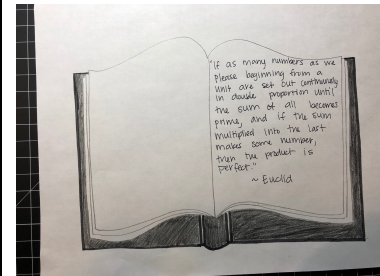 "If as many numbers as we
please beginning from a
unit are set out continuously
in double proportion until
the sum of all becomes
prime, and if the sum
multiplied into the last
makes some number,
then the product is
perfect."
~ Euclid